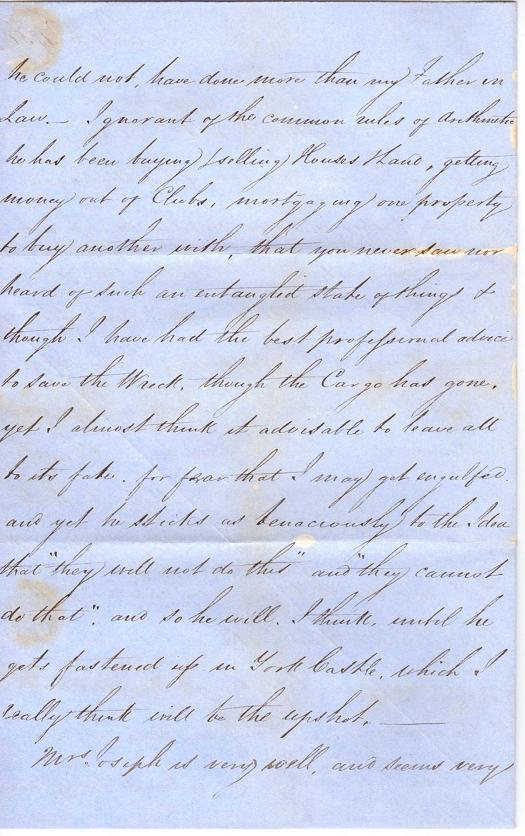 he could not, have done more than my Father in
Law. — Ignorant of the common rules of Arithmetic
he has been buying / selling Houses & Land, getting
money out of Clubs, mortgaging one property
to buy another with, that you never saw nor
heard of such an entangled state of things &
though I have had the best professional advice
to save the Wreck, though the Cargo has gone,
yet I almost think it advisable to leave all
to its fate. for fear that I may get engulfed.
and yet he sticks as tenaciously to the Idea
that "they will not do this" and "they cannot
do that". and so he will. I think. until he
gets fastened up in York Castle, which I
really think will be the upshot. —
Mrs. Joseph is very well, and seems very